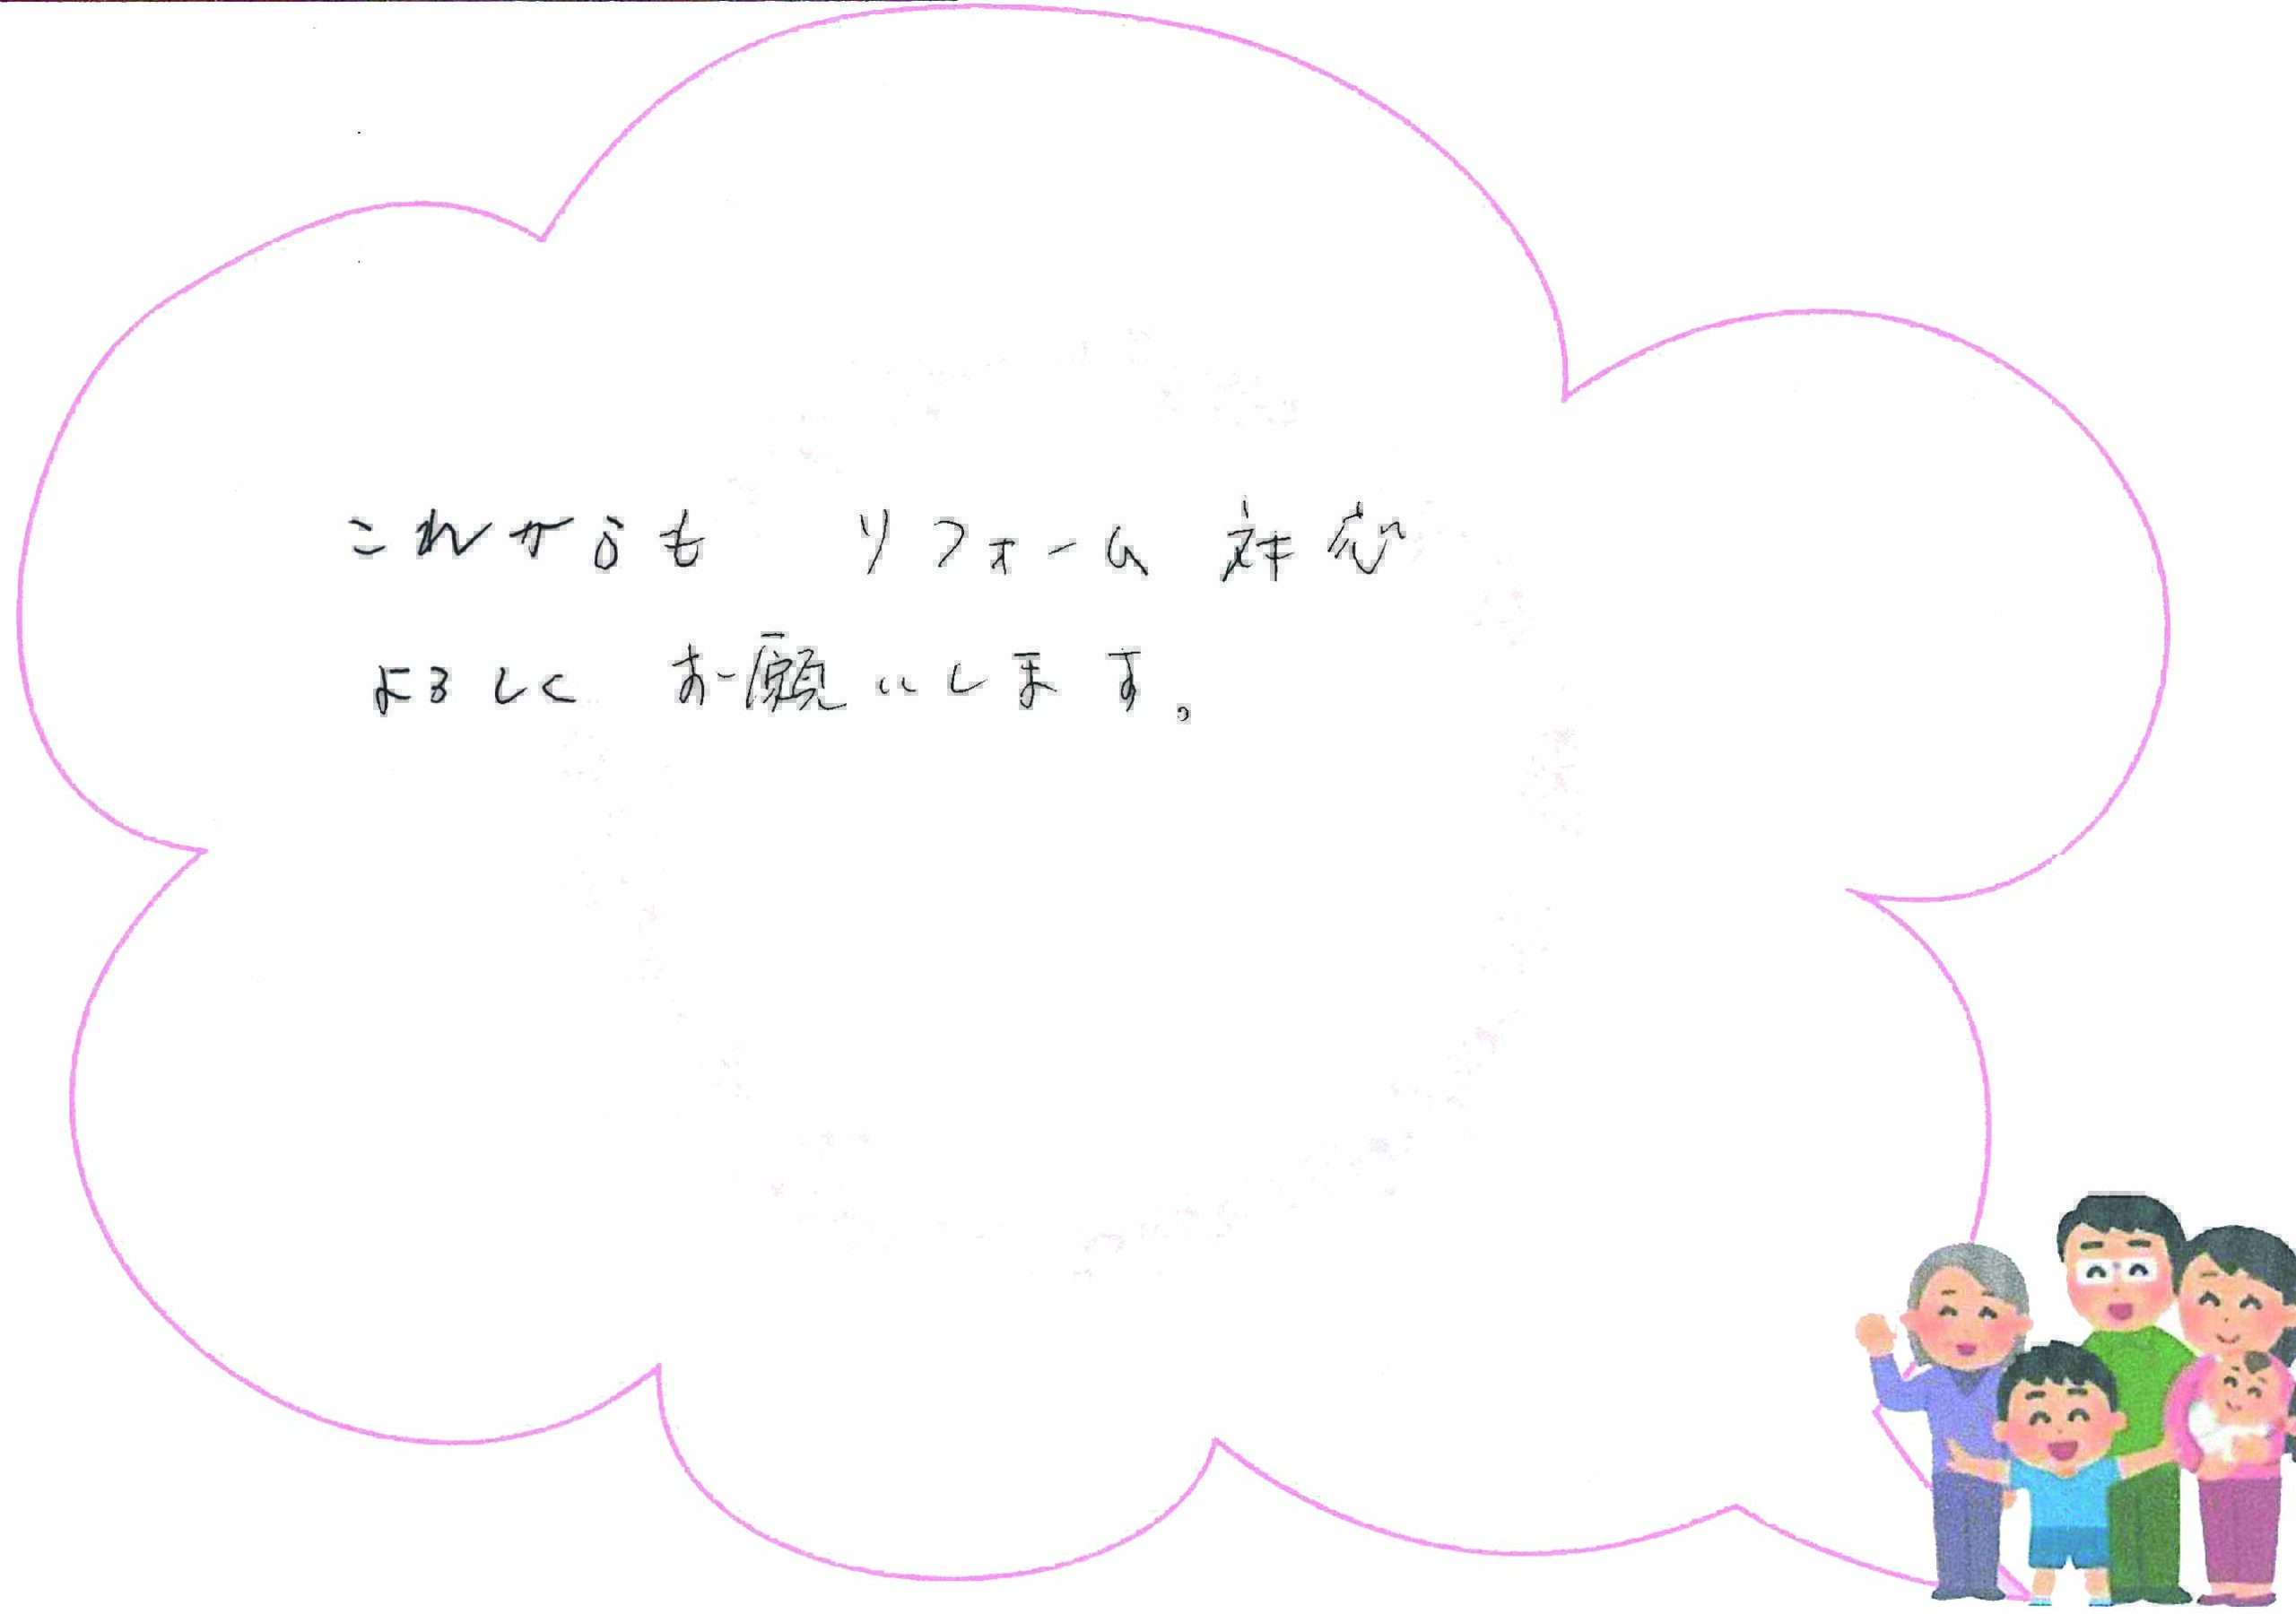 これからも リフォーム 対応
よろしく お願いします。